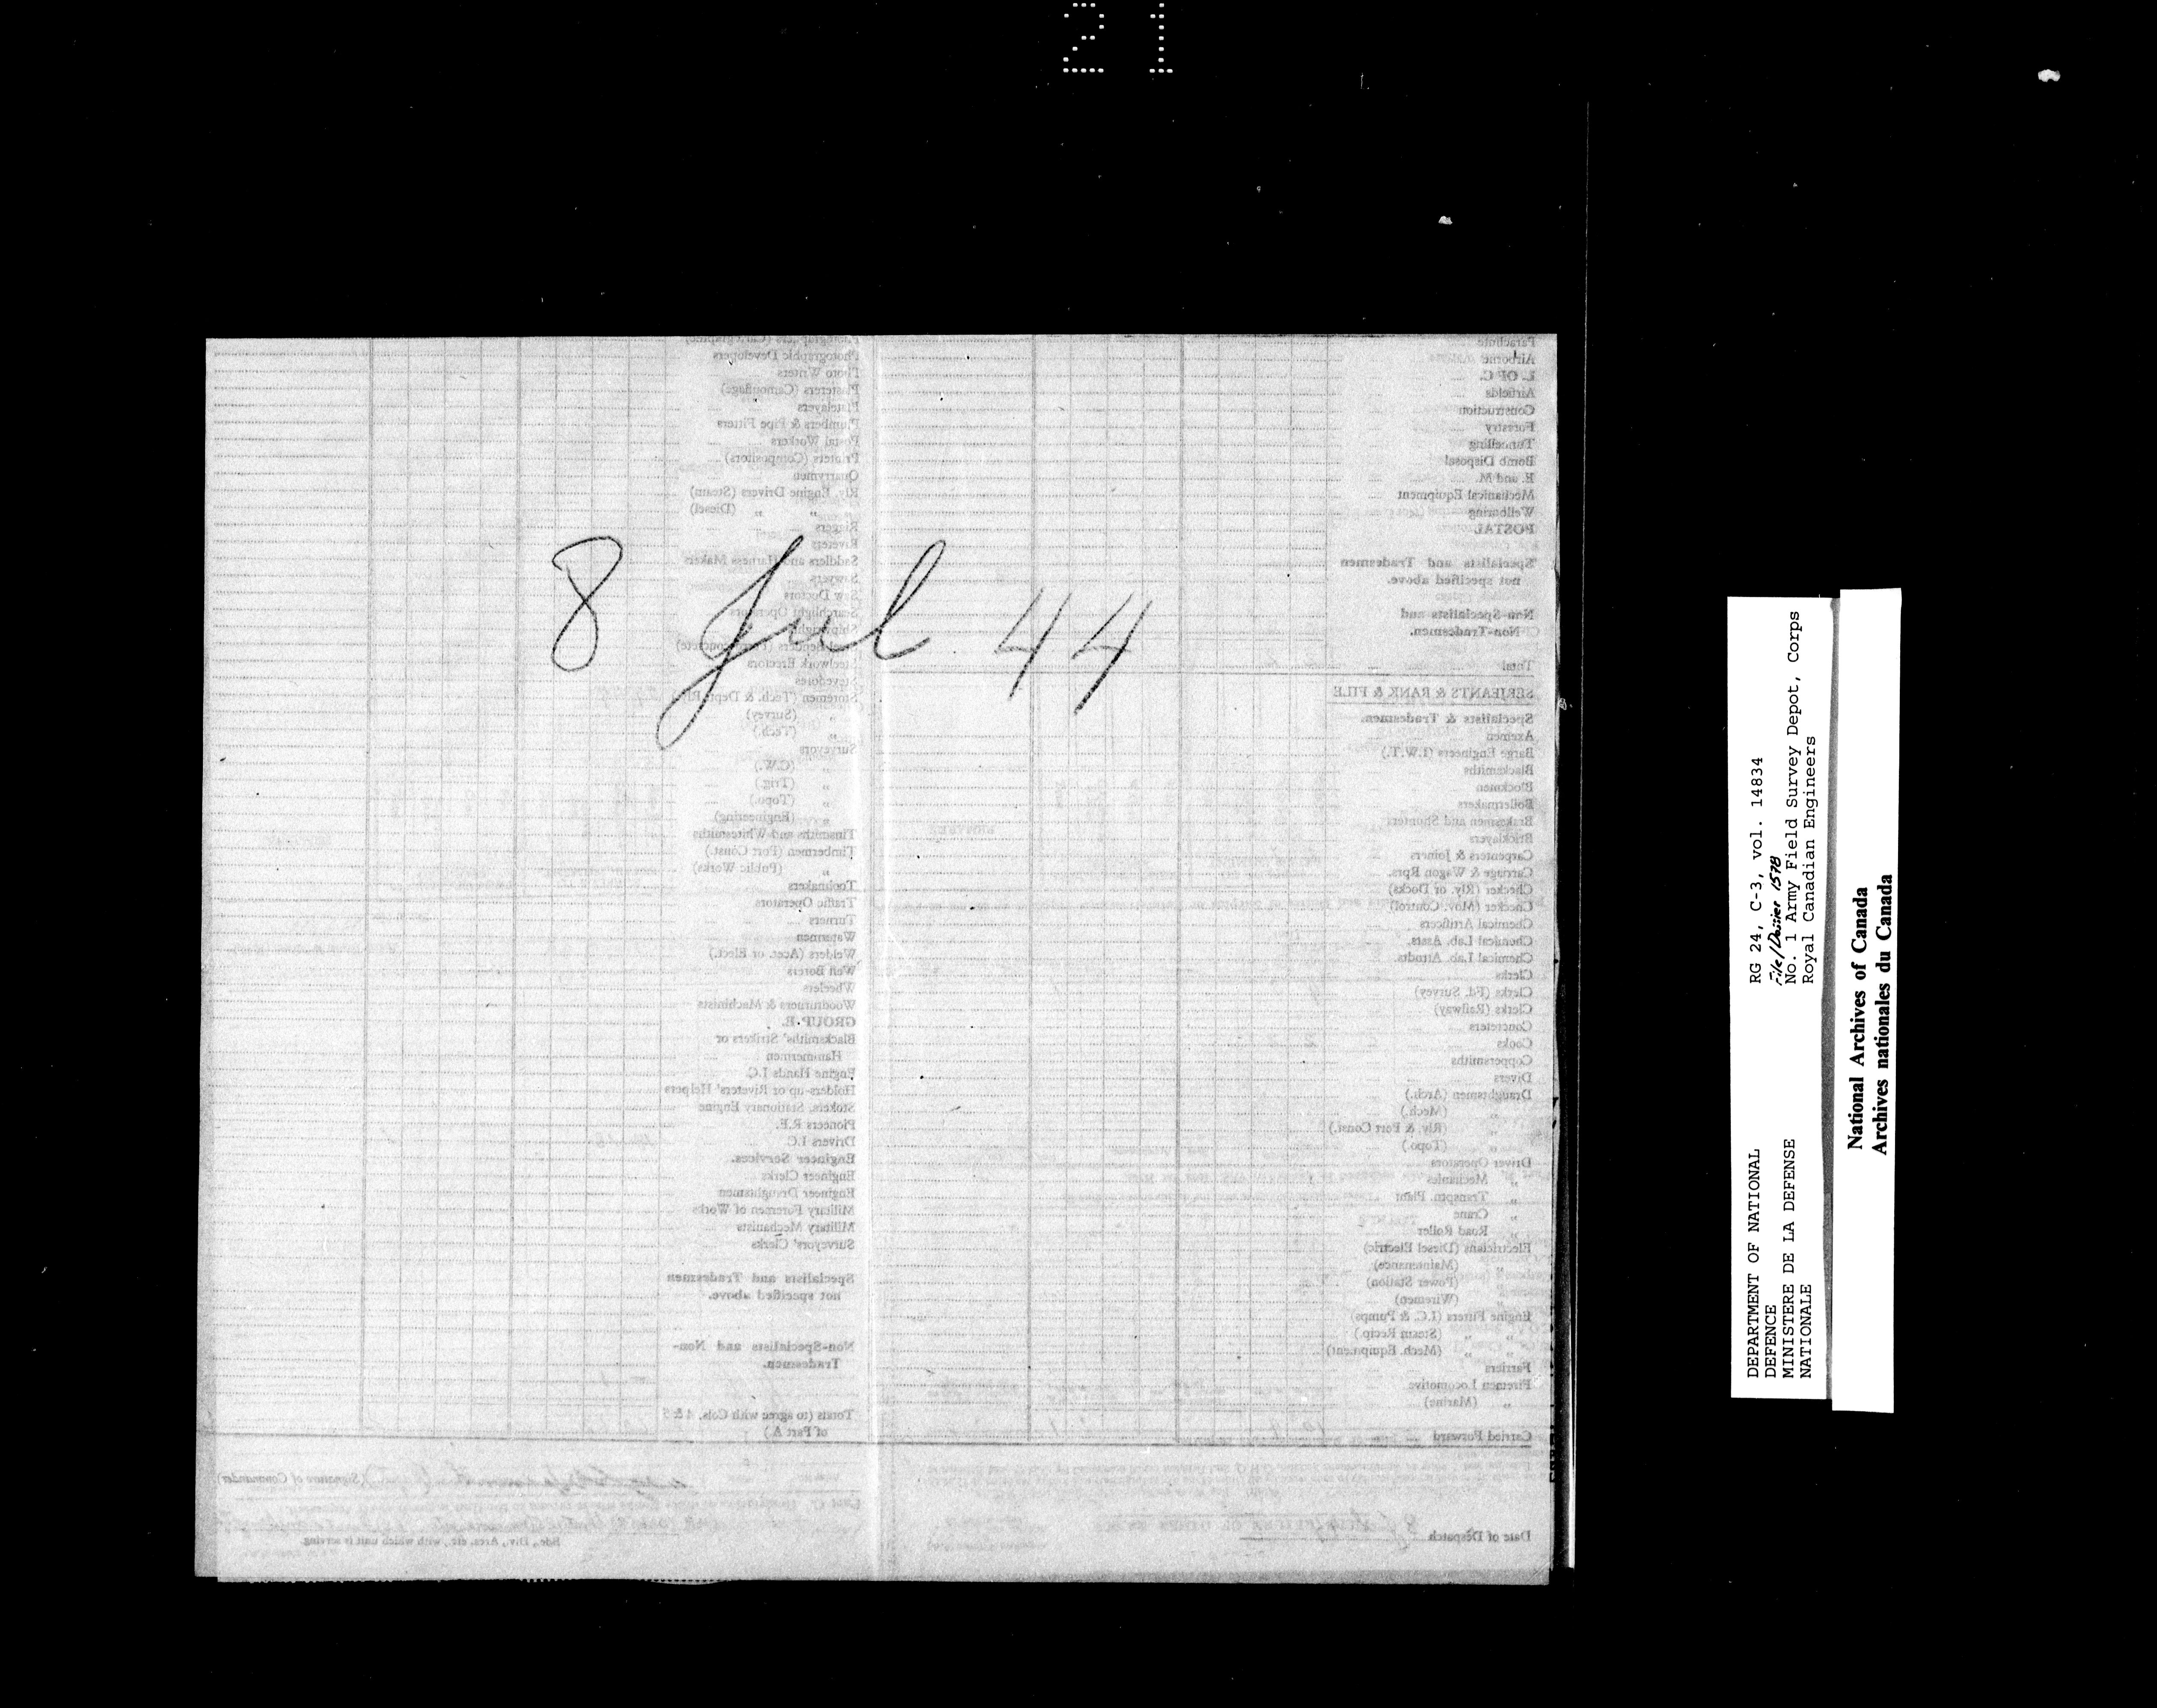 21
8 Jul 44
DEPARTMENT OF NATIONAL
DEFENCE
MINISTERE DE LA DEFENSE
NATIONALE
RG 24, C-3, vol. 14834
File/Dossier 1578
No. 1 Army Field Survey Depot, Corps
Royal Canadian Engineers
National Archives of Canada
Archives nationales du Canada
Parachute
Airborne
L. OF C.
Airfields
Construction
Forestry
Tunnelling
Bomb Disposal
E. and M.
Mechanical Equipment
Wellboring
POSTAL
Specialists and Tradesmen
not specified above.
Non-Specialists and
Non-Tradesmen.
Total
SERJEANTS & RANK & FILE
Specialists & Tradesmen.
Axemen
Barge Engineers (I.W.T.)
Blacksmiths
Blockmen
Boilermakers
Brakesmen and Shunters
Bricklayers
Carpenters & Joiners
Carriage & Wagon Rprs.
Checker (Rly. or Docks)
Checker (Mov. Control)
Chemical Artificers
Chemical Lab. Assts.
Chemical Lab. Attndts.
Clerks
Clerks (Fd. Survey)
Clerks (Railway)
Concreters
Cooks
Coppersmiths
Divers
Draughtsmen (Arch.)
„ (Mech.)
„ (Rly. & Port Const.)
„ (Topo.)
Driver Operators
„ Mechanics
„ Transptn. Plant
„ Crane
„ Road Roller
Electricians (Diesel Electric)
„ (Maintenance)
„ (Power Station)
„ (Wiremen)
Engine Fitters (I.C. & Pumps)
„ „ (Steam Recip.)
„ „ (Mech. Equipment)
Farriers
Firemen Locomotive
„ (Marine)
Carried Forward
Date of Despatch
Photographic Developers
Photo Writers
Plasterers (Camouflage)
Platelayers
Plumbers & Pipe Fitters
Postal Workers
Printers (Compositors)
Quarrymen
Rly. Engine Drivers (Steam)
„ „ „ (Diesel)
Riggers
Riveters
Saddlers and Harness Makers
Sawyers
Saw Doctors
Searchlight Operators
Shipwrights
Steelwork Erectors
Stevedores
Storemen (Tech. & Dept. RE.)
„ (Survey)
„ (Tech.)
Surveyors
„ (C.W.)
„ (Trig.)
„ (Topo.)
„ (Engineering)
Tinsmiths and Whitesmiths
Timbermen (Port Const.)
„ (Public Works)
Toolmakers
Traffic Operators
Turners
Watermen
Welders (Acet. or Elect.)
Well Borers
Wheelers
Woodturners & Machinists
GROUP E.
Blacksmiths' Strikers or
Hammermen
Engine Hands I.C.
Holders-up or Riveters' Helpers
Stokers, Stationery Engine
Pioneers R.E.
Drivers I.C.
Engineer Services.
Engineer Clerks
Engineer Draughtsmen
Military Foremen of Works
Military Mechanists
Surveyors' Clerks
Specialists and Tradesmen
not specified above.
Non-Specialists and Non-
Tradesmen.
Totals (to agree with Cols. 4 & 5
of Part A.)
(Signature of Commander)
Bde., Div., Area, etc., with which unit is serving.